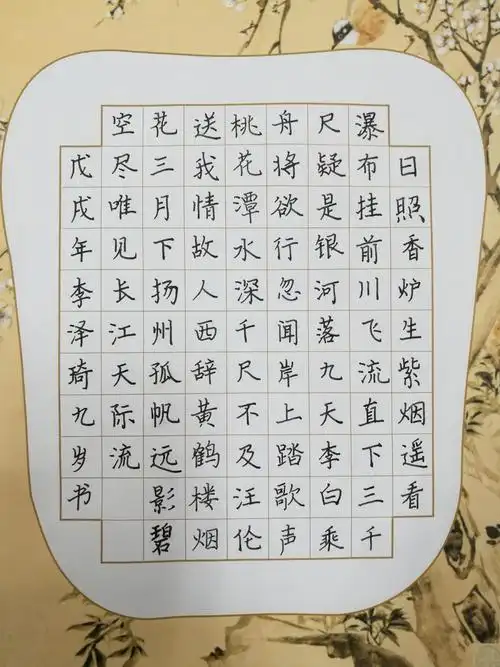 日照香炉生紫烟遥看
瀑布挂前川飞流直下三千
尺疑是银河落九天李白乘
舟将欲行忽闻岸上踏歌声
桃花潭水深千尺不及汪伦
送我情故人西辞黄鹤楼烟
花三月下扬州孤帆远影碧
空尽唯见长江天际流
戊戌年李泽琦九岁书